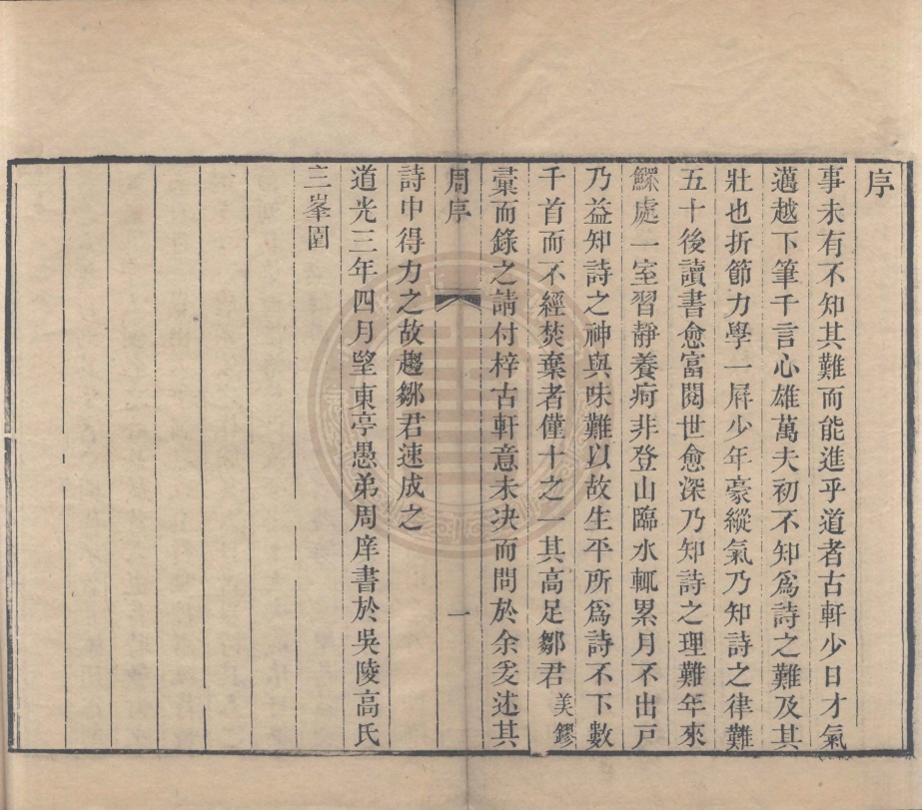 序
事未有不知其難而能進乎道者古軒少日才氣
邁越下筆千言心雄萬夫初不知爲詩之難及其
壯也折節力學一屛少年豪縱氣乃知詩之律難
五十後讀書愈富閱世愈深乃知詩之理難年來
鰥處一室習靜養疴非登山臨水輒累月不出戸
乃益知詩之神與味難以故生平所爲詩不下數
千首而不經焚棄者僅十之一其高足鄒君美鏐
彚而錄之請付梓古軒意未决而問於余爰述其
周序 一
詩中得力之故趣鄒君速成之
道光三年四月望東亭愚弟周庠書於吳陵高氏
三峯園